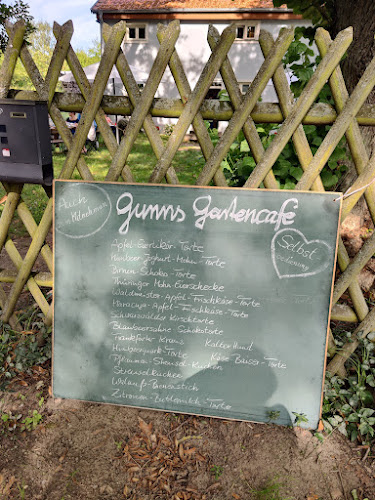 Auch
zum
Mitnehmen
Gunns Gartencafe
Selbst
bedienung
Apfel-Eierlikör-Torte
Himbeer-Joghurt-Mohn-Torte
Birnen-Schoko-Torte
Thüringer Mohn Eierschecke
Walnuss-Apfel-Frischkäse-Torte
Maracuja-Apfel-Frischkäse-Torte
Schwarzwälder Kirschtorte
Blaubeersahne Schokotorte
Frankfurter Kranz Kalter Hund
Torte Käse Baiser-Torte
Pflaumen-Streusel-Kuchen
Streuselkuchen
Bienenstich
Zitronen-Buttermilch-Torte